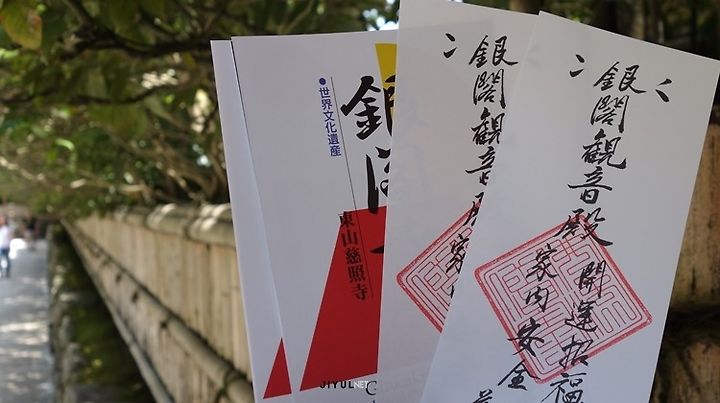 ●世界文化遺産
銀閣
東山慈照寺
銀閣観音殿
家
銀閣観音殿
開運招福
家内安全
JIYULNET